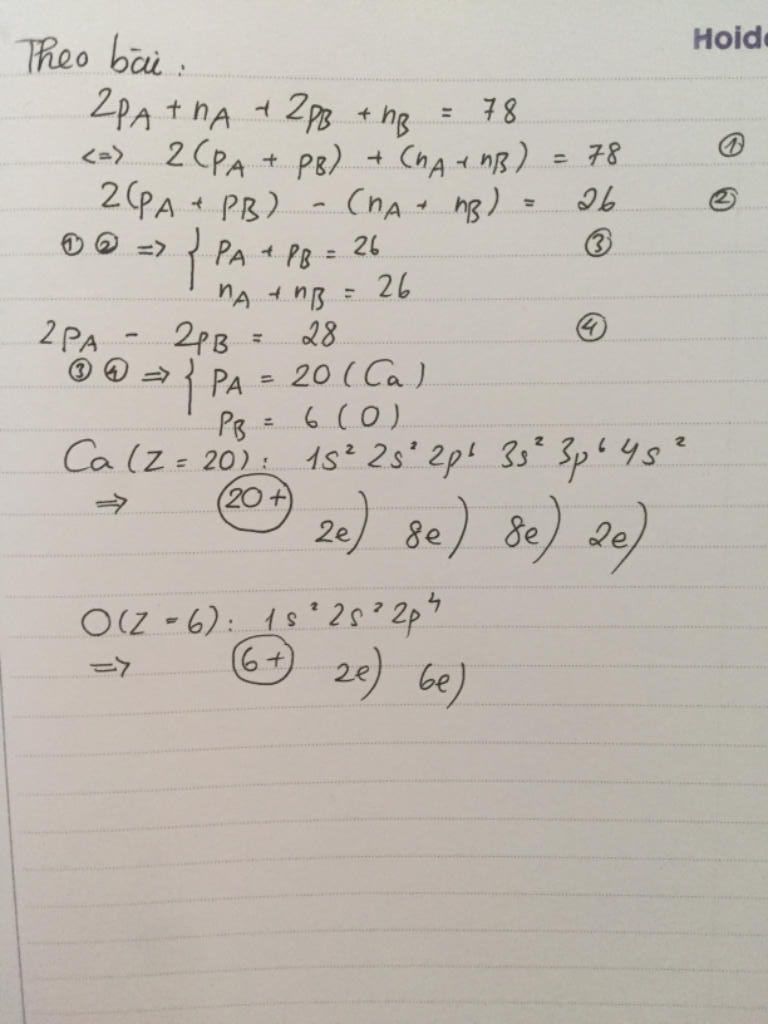 Hoid
Theo bài :
2pA + nA + 2pB + nB = 78
<=> 2(pA + pB) + (nA + nB) = 78 ①
2(pA + pB) - (nA + nB) = 26 ②
① ② => { pA + pB = 26 ③
nA + nB = 26
2pA - 2pB = 28 ④
③ ④ => { pA = 20 (Ca)
pB = 6 (O)
Ca (Z = 20) : 1s² 2s² 2p⁶ 3s² 3p⁶ 4s²
=> 20+ 2e) 8e) 8e) 2e)
O(Z = 6) : 1s² 2s² 2p⁴
=> 6+ 2e) 6e)